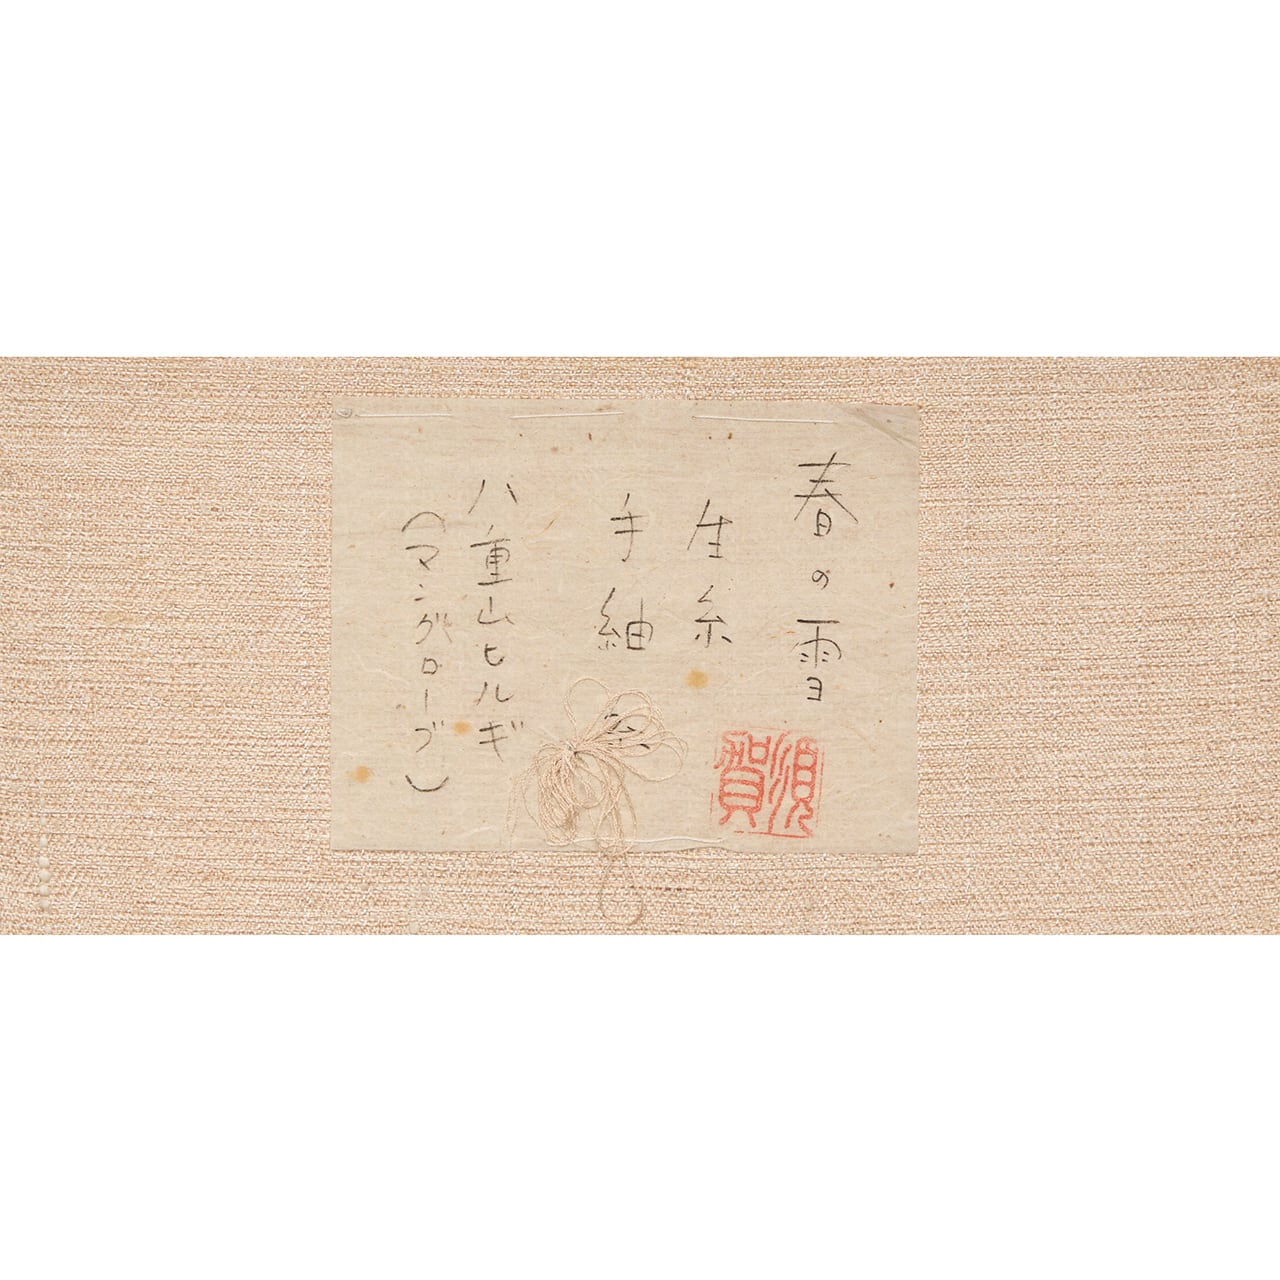 春の雪
生糸
手紬
八重山ヒルギ
(マングローブ)
須賀